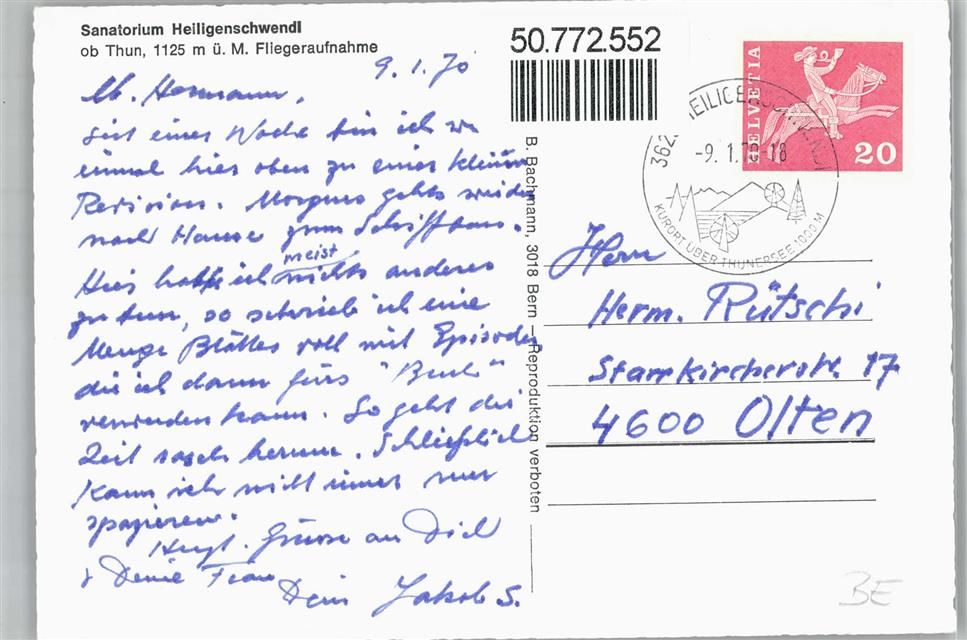 Sanatorium Heiligenschwendl
ob Thun, 1125 m ü. M. Fliegeraufnahme
9.1.70
Lb. Hermann,
seit einer Woche bin ich wieder
einmal hier oben zu einer kleinen
Revision. Morgen gehts wieder
nach Hause zum Schiffbau.
meist
Hier hatte ich nichts anderes
zu tun, so schrieb ich eine
Menge Blätter voll mit Episoden
die ich dann fürs "Buch"
verwenden kann. So geht die
Zeit rasch herum. Schließlich
kann ich nicht immer nur
spazieren.
Herzl. Grüsse an Dich
& Deine Frau
Dein Jakob S.
50.772.552
B. Bachmann, 3018 Bern – Reproduktion verboten
HELVETIA
20
362 HEILIGENSCHWENDI
-9.1.70-18
KURORT ÜBER THUNERSEE 1000 M
Herrn
Herm. Rütschi
Starrkircherstr. 17
4600 Olten
BE